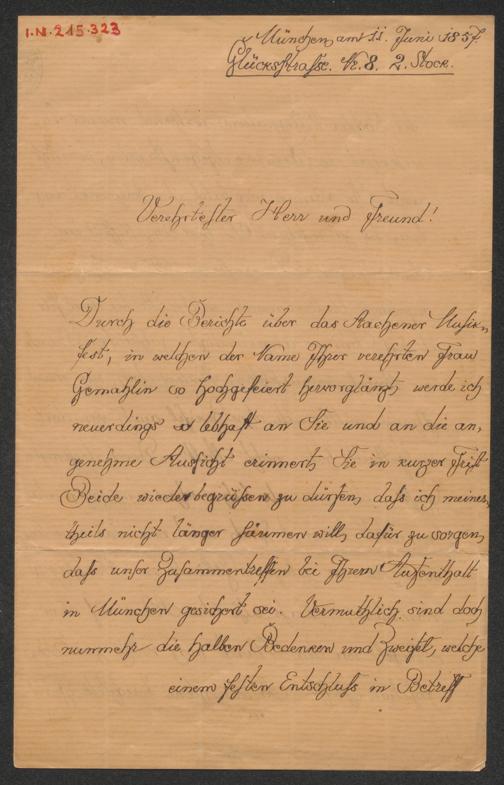 I.N. 215.323
München, am 11. Juni 1857.
Glücksstrasse. Nr. 8. 2. Stock.
Verehrtester Herr und Freund!
Durch die Berichte über das Aachener Musik-
fest, in welchen der Name Ihrer verehrten Frau
Gemahlin so hochgefeiert hervorglänzt, werde ich
neuerdings so lebhaft an Sie und an die an,
genehme Aussicht erinnert, Sie in kurzer Frist
Beide wieder begrüssen zu dürfen, dass ich meiner,
theils nicht länger säumen will, dafür zu sorgen,
dass unser Zusammentreffen bei Ihrem Aufenthalt
in München gesichert sei. Vermuthlich sind doch
nunmehr die halben Bedenken und Zweifel, welche
einem festen Entschluss in Betreff